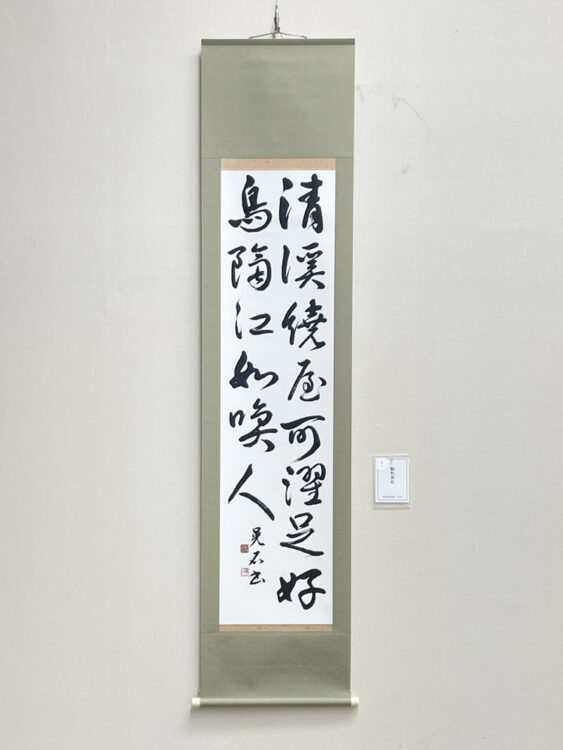 清溪繞屋可濯足好
鳥隔江如喚人
晃石書